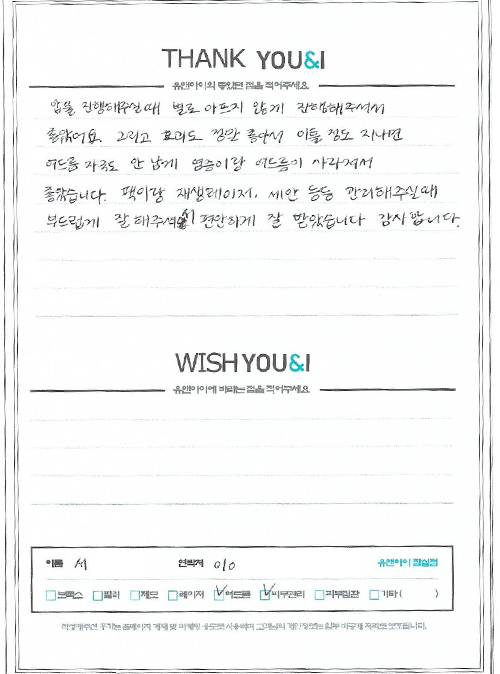 THANK YOU&I
유앤아이의 좋았던 점을 적어주세요.
압출 진행해주실때 별로 아프지 않게 진행해주셔서
좋았어요. 그리고 효과도 정말 좋아서 이틀 정도 지나면
여드름 자국도 안 남게 염증이랑 여드름이 사라져서
좋았습니다. 팩이랑 재생레이저, 세안 등등 관리해주실때
부드럽게 잘 해주셔서 편안하게 잘 받았습니다 감사합니다.
WISH YOU&I
유앤아이에 바라는 점을 적어주세요.
이름 서 연락처 010 유앤아이 잠실점
보톡스 필러 제모 레이저 여드름 피부관리 피부질환 기타 ( )